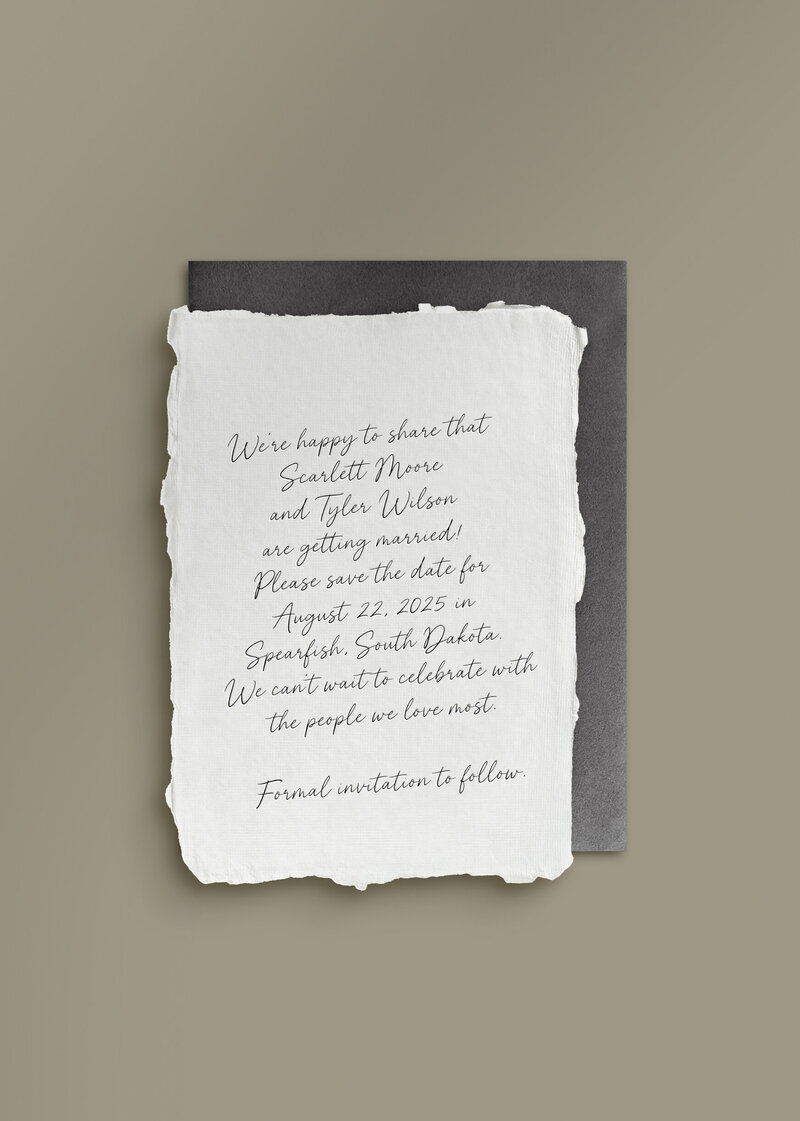 We're happy to share that
Scarlett Moore
and Tyler Wilson
are getting married!
Please save the date for
August 22, 2025 in
Spearfish, South Dakota.
We can't wait to celebrate with
the people we love most.
Formal invitation to follow.